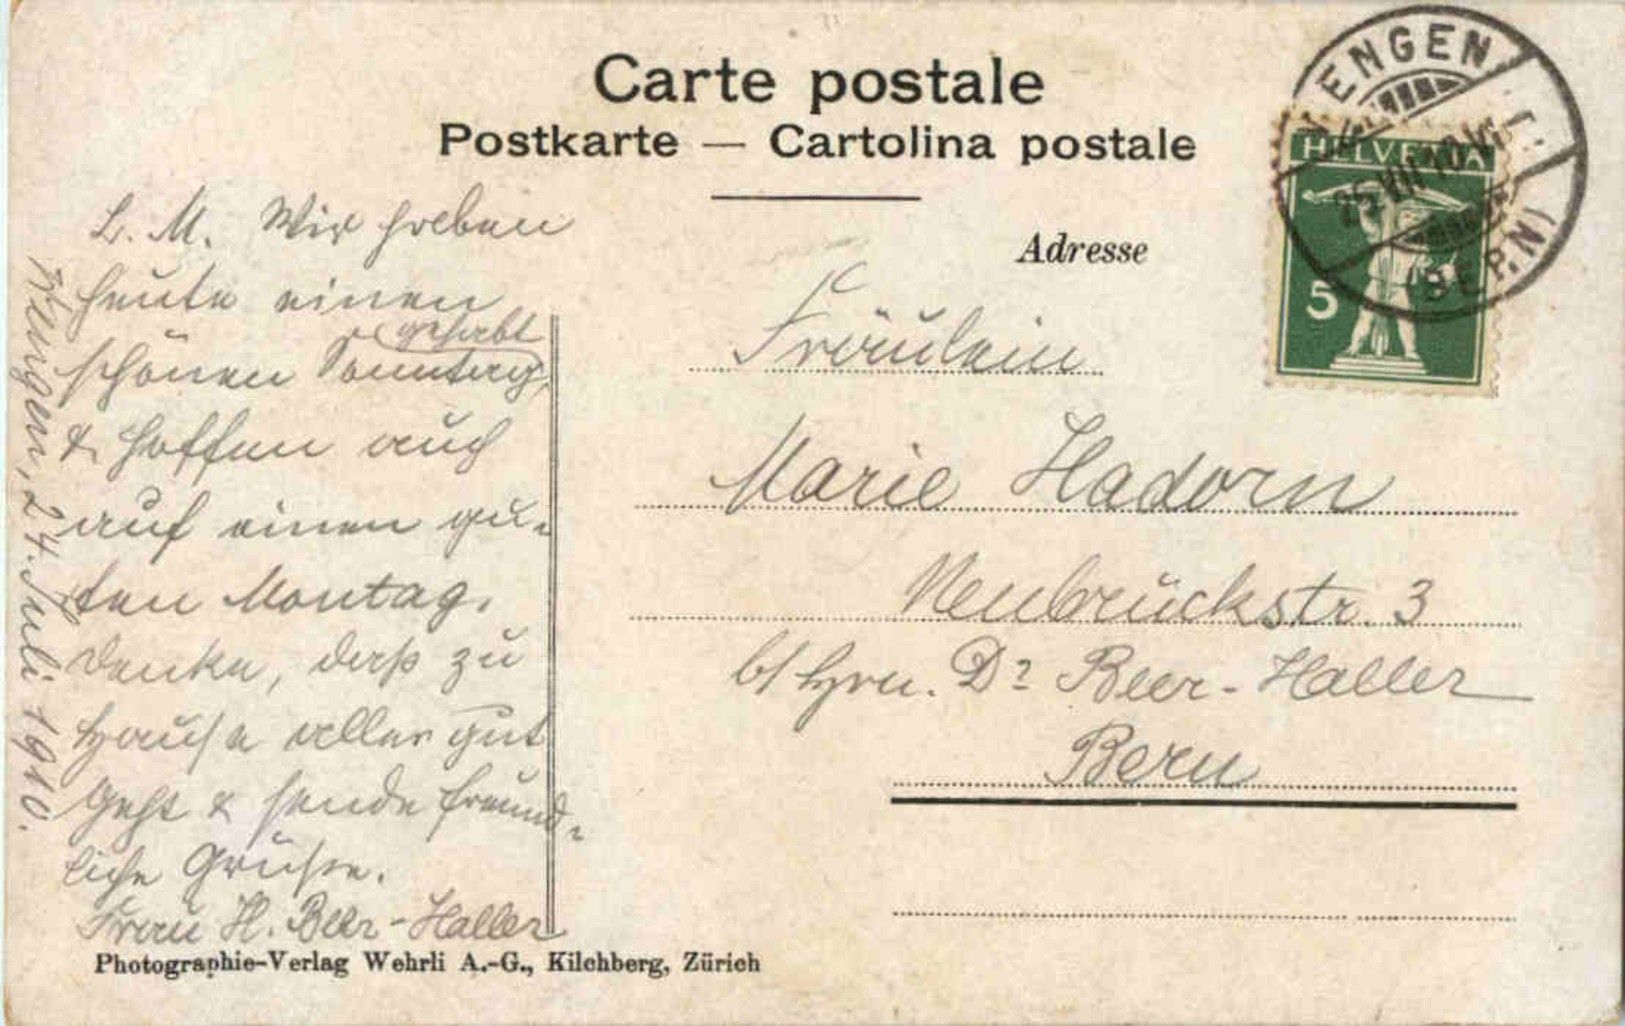 Carte postale
Postkarte — Cartolina postale
WENGEN
25. VII. 10. VI
(BERN)
HELVETIA
5
Adresse
Fräulein
Marie Hadorn
Neubrückstr. 3
b/ Hrn. Dr Beer-Haller
Bern
Wengen, 24. Juli 1910.
L. M. Wir haben
heute einen
gehabt
schönen Sonntag,
& hoffen auch
auf einen gu-
ten Montag.
Denke, daß zu
Hause alles gut
geht & sende freund-
liche Grüße.
Frau H. Beer-Haller
Photographie-Verlag Wehrli A.-G., Kilchberg, Zürich